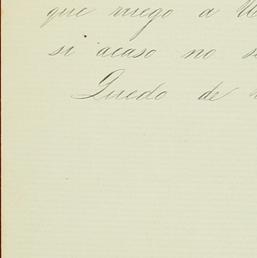 que ruego a U
si acaso no s
Quedo de